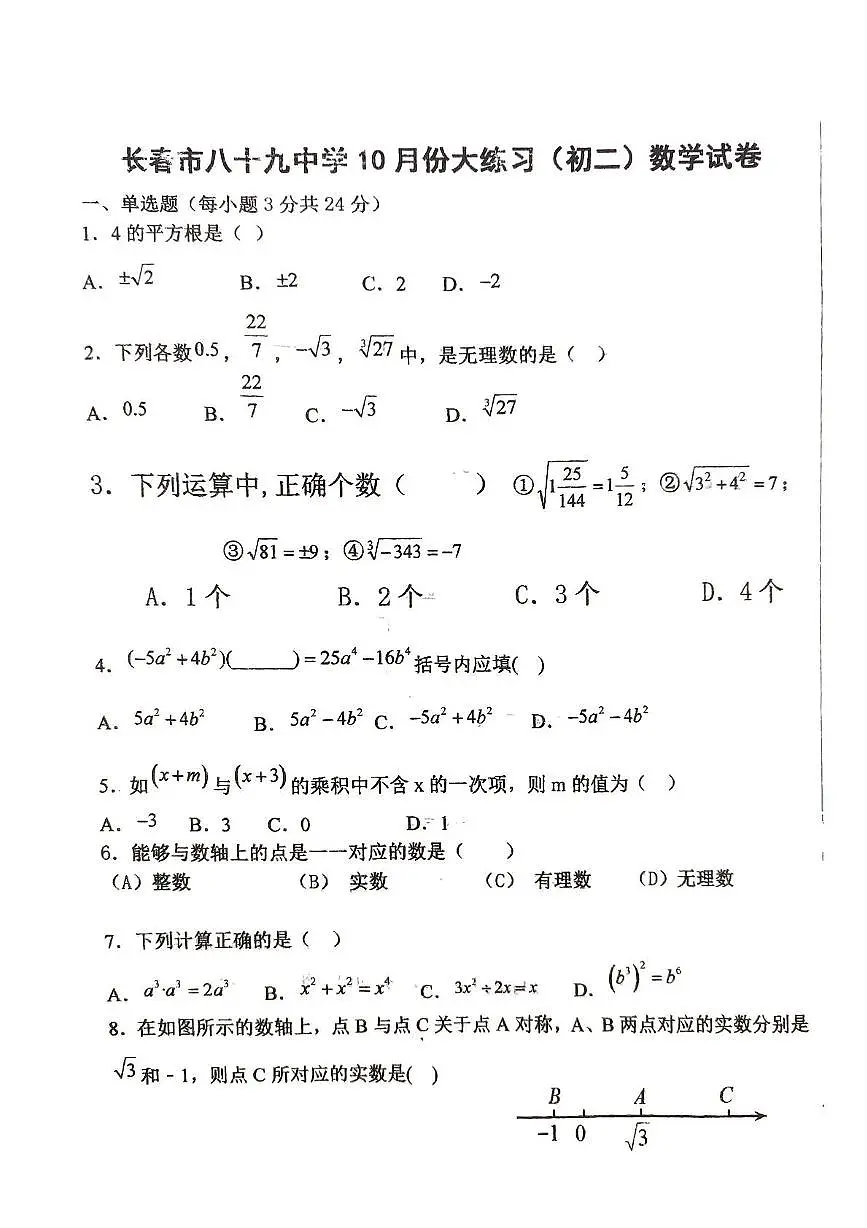 长春市八十九中学10月份大练习（初二）数学试卷
一、单选题（每小题3分共24分）
1. 4的平方根是（ ）
A. ±√2 B. ±2 C. 2 D. -2
2. 下列各数0.5，22/7，-√3，∛27中，是无理数的是（ ）
A. 0.5 B. 22/7 C. -√3 D. ∛27
3. 下列运算中,正确个数（ ） ①√(1 25/144)=1 5/12；②√(3²+4²)=7；
③√81=±9；④∛-343=-7
A. 1个 B. 2个 C. 3个 D. 4个
4. (-5a²+4b²)(______)=25a⁴-16b⁴括号内应填( )
A. 5a²+4b² B. 5a²-4b² C. -5a²+4b² D. -5a²-4b²
5. 如(x+m)与(x+3)的乘积中不含x的一次项，则m的值为（ ）
A. -3 B. 3 C. 0 D. 1
6. 能够与数轴上的点是一一对应的数是（ ）
（A）整数 （B） 实数 （C） 有理数 （D）无理数
7. 下列计算正确的是（ ）
A. a³·a³=2a³ B. x²+x²=x⁴ C. 3x²÷2x=x D. (b³)²=b⁶
8. 在如图所示的数轴上，点B与点C关于点A对称，A、B两点对应的实数分别是
√3和-1，则点C所对应的实数是( )
B A C
-1 0 √3